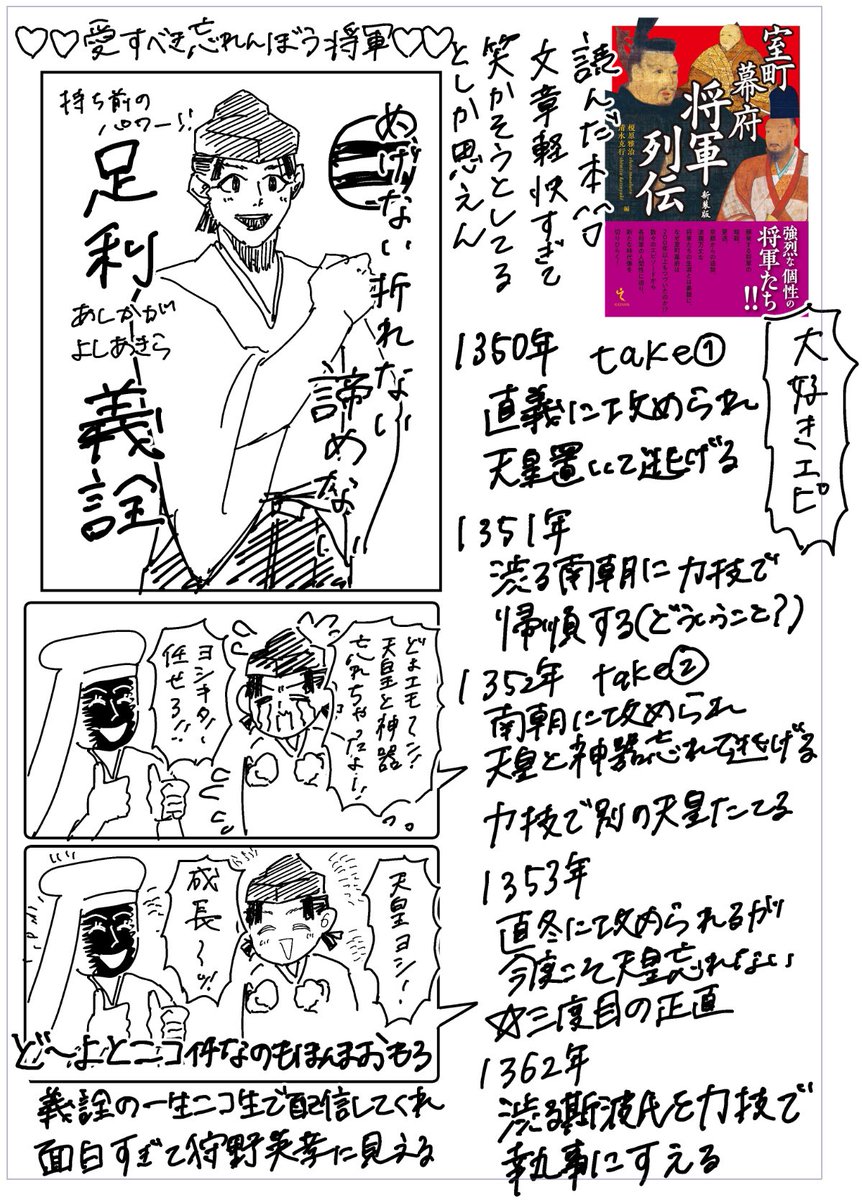 ♡♡愛すべき忘れんぼう将軍♡♡
持ち前の
パワー!!
足利
あしかが
よしあきら
義詮
めげない折れない
諦めない
読んだ本👉
文章軽快すぎて
笑かそうとしてる
としか思えん
室町
幕府
将軍
列伝
新装版
榎原雅治
清水克行
編
強烈な個性の
将軍たち
!!
大好きエピ
1350年 take①
直義に攻められ
天皇置いて逃げる
1351年
渋る南朝に力技で
帰順する(どういうこと?)
1352年 take②
南朝に攻められ
天皇と神器忘れて逃げる
力技で別の天皇たてる
1353年
直冬に攻められるが
今度こそ天皇忘れない
☆三度目の正直
1362年
渋る斯波氏を力技で
執事にすえる
どよエモン!
天皇と神器
忘れちゃったよー!!
ヨシキタ!
任せろ!!
天皇ヨシ!
成長〜ッ!
ど〜よとニコイチなのもほんまおもろ
義詮の一生ニコ生で配信してくれ
面白すぎて狩野英孝に見える